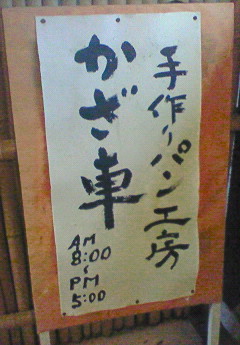 手作りパン工房
かざ車
AM
8:00
〜
PM
5:00